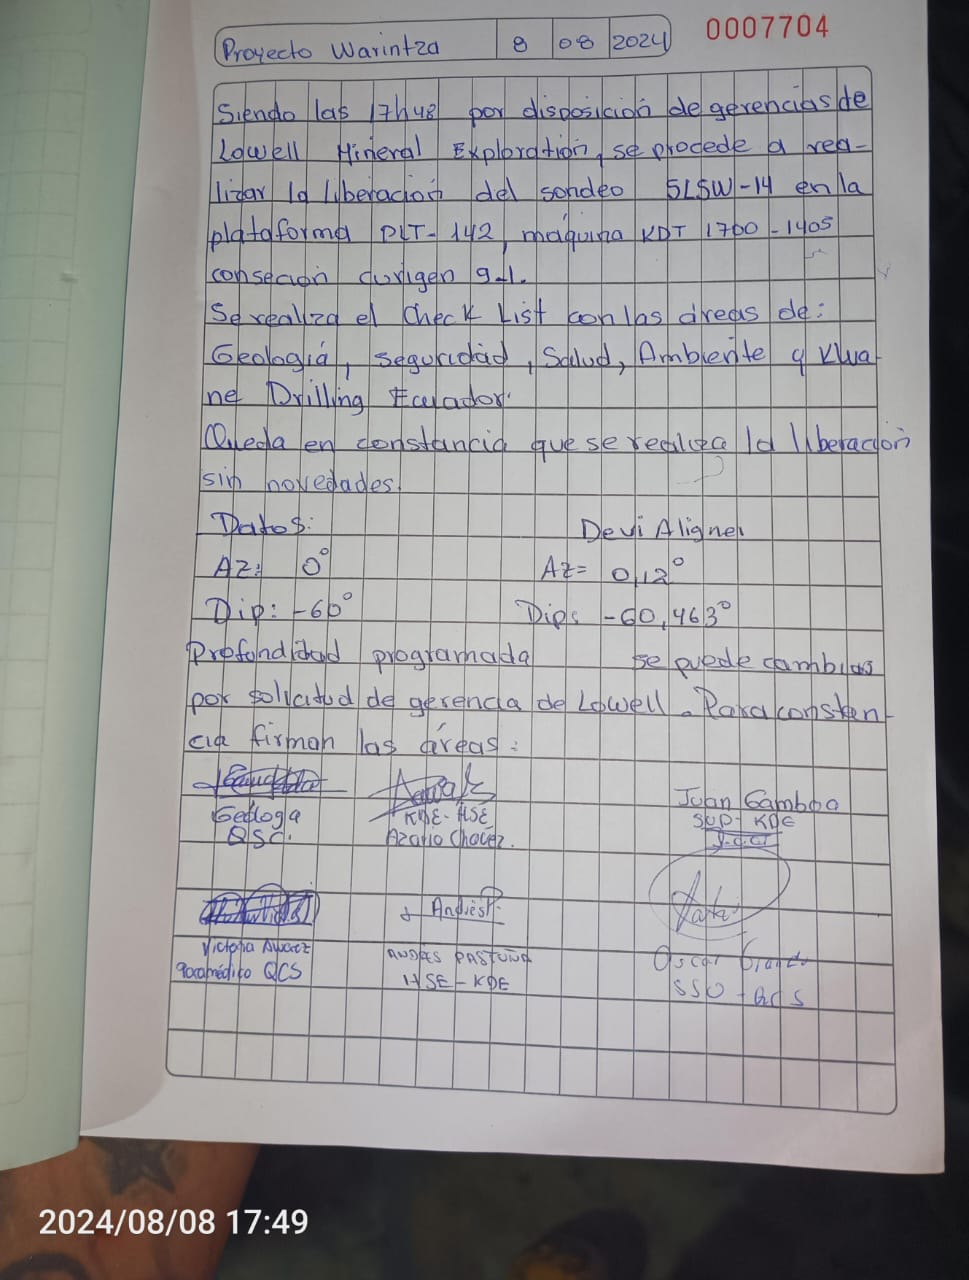 Proyecto Warintza 8 08 2024 0007704
Siendo las 17h48 por disposición de gerencias de
Lowell Mineral Exploration, se procede a rea-
lizar la liberación del sondeo SLSW-14 en la
plataforma PLT-142, máquina KDT 1700-1405
curigen 9-1.
Se realiza el Check List con las áreas de:
Geología, seguridad, Salud, Ambiente y Klua
ne Drilling Ecuador.
Queda en constancia que se realiza la liberación
sin novedades.
Datos: Devi Aligner
Az: 0° Az= 0,12°
Dip: -60° Dip: -60,463°
Profundidad programada se puede cambias
por solicitud de gerencia de Lowell. Para constan
cia firman las áreas:
Juan Gamboa
Geóloga KDE-HSE SUP-KDE
QSC. Azario Chavez.
Andrés P.
Victoria Alvarez ANDRES PASTUÑA Oscar
Paramédico QCS HSE-KDE SSO-QCS
2024/08/08 17:49